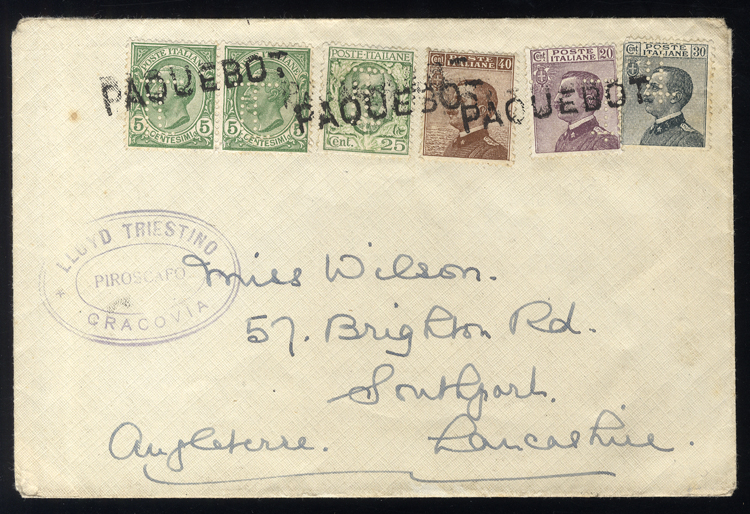 POSTE ITALIANE
5 5
CENTESIMI
POSTE ITALIANE
5 5
CENTESIMI
POSTE-ITALIANE
Cent. 25
Cent 40
POSTE
ITALIANE
Cent 20
POSTE
ITALIANE
Cent 30
POSTE
ITALIANE
PAQUEBOT
PAQUEBOT
PAQUEBOT
LLOYD TRIESTINO
PIROSCAFO
* CRACOVIA
Miss Wilson.
57. Brighton Rd.
Southport.
Angleterre. Lancashire.